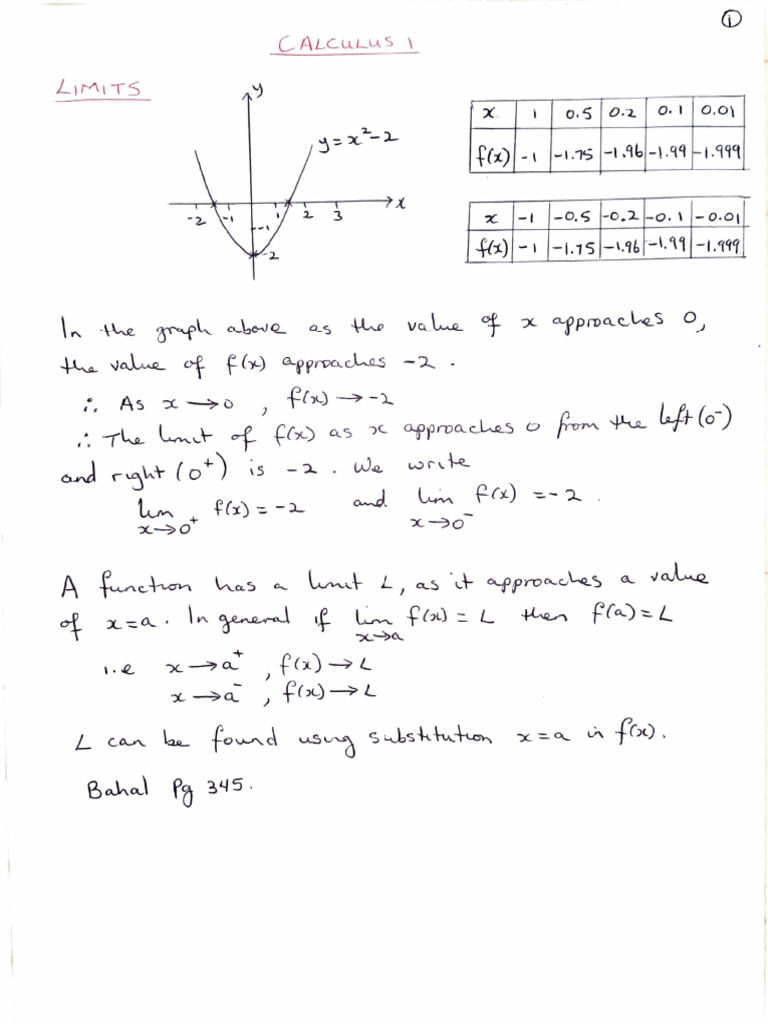 ①
CALCULUS 1
LIMITS
y
y = x² - 2
x
-2 -1 1 2 3
-1
-2
x 1 0.5 0.2 0.1 0.01
f(x) -1 -1.75 -1.96 -1.99 -1.999
x -1 -0.5 -0.2 -0.1 -0.01
f(x) -1 -1.75 -1.96 -1.99 -1.999
In the graph above as the value of x approaches 0,
the value of f(x) approaches -2.
∴ As x → 0 , f(x) → -2
∴ The limit of f(x) as x approaches 0 from the left (0⁻)
and right (0⁺) is -2. We write
lim f(x) = -2 and lim f(x) = -2.
x→0⁺ x→0⁻
A function has a limit L, as it approaches a value
of x=a. In general if lim f(x) = L then f(a) = L
x→a
i.e x → a⁺ , f(x) → L
x → a⁻ , f(x) → L
L can be found using substitution x=a in f(x).
Bahal Pg 345.